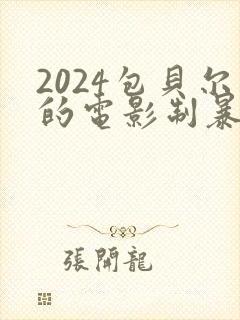 2024包貝尔
的電影制暴
張開龍